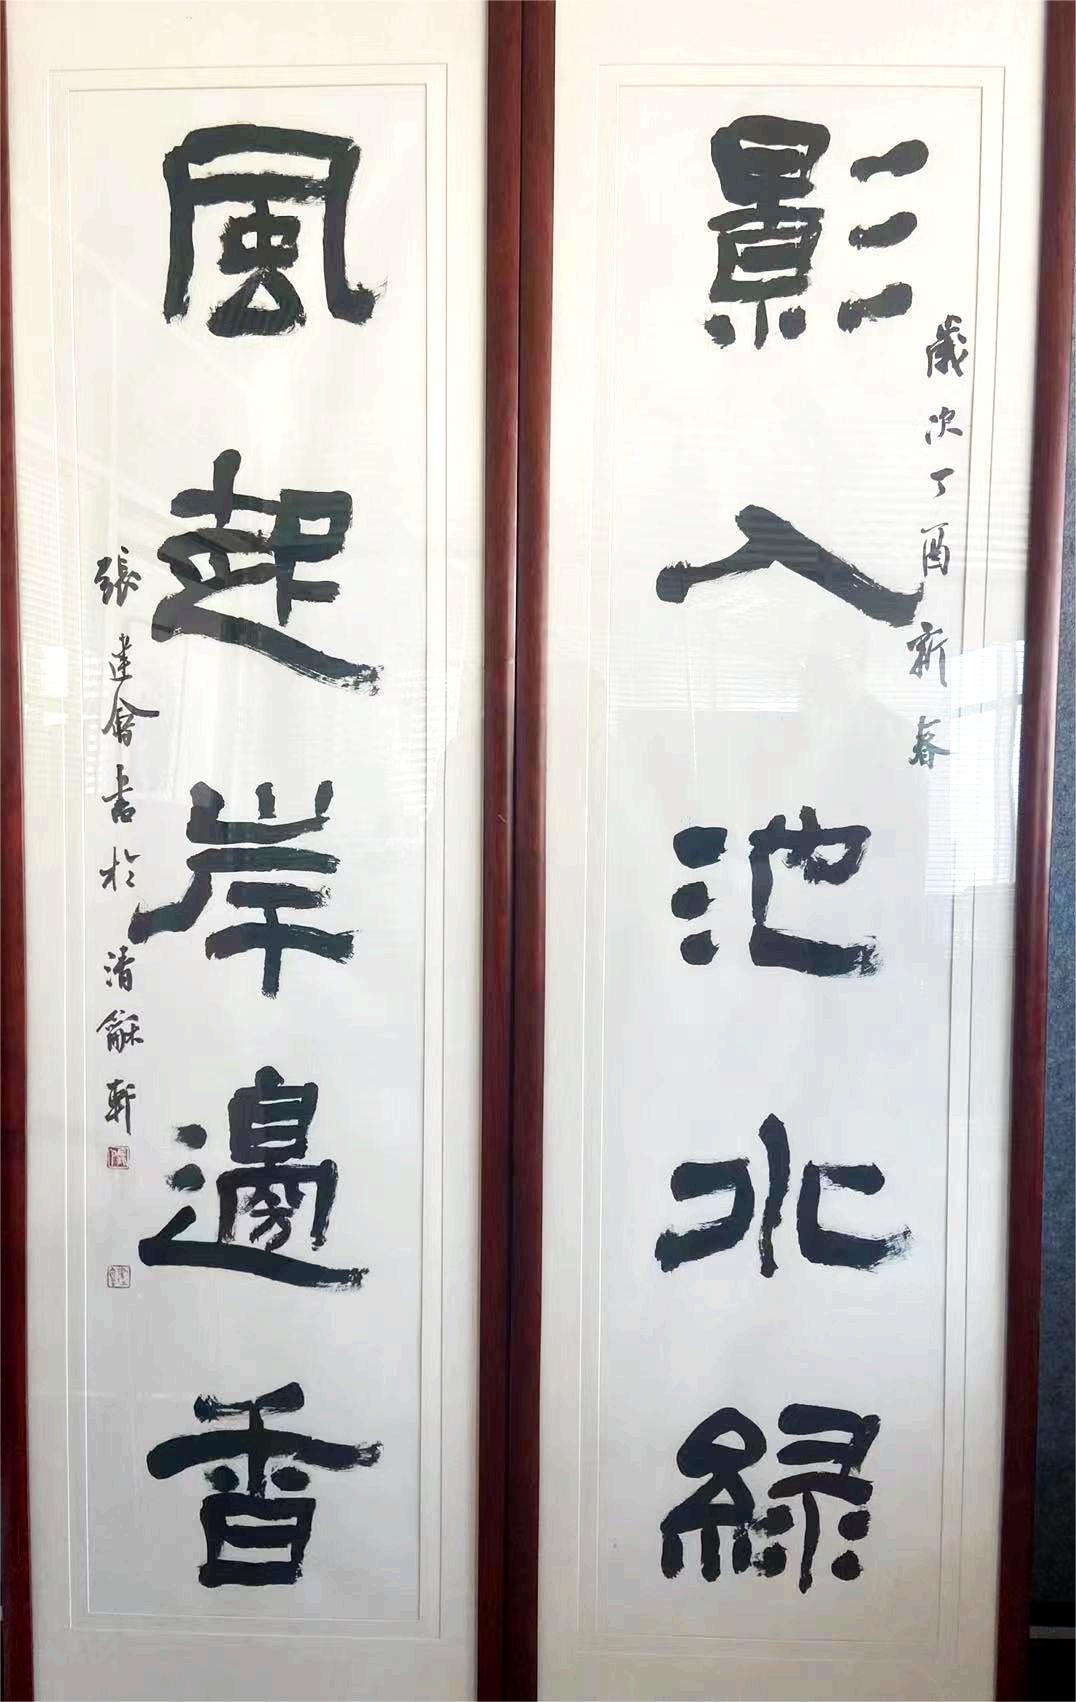 歲次丁酉新春
影入池水綠
風起岸邊香
張建會書於清龢軒